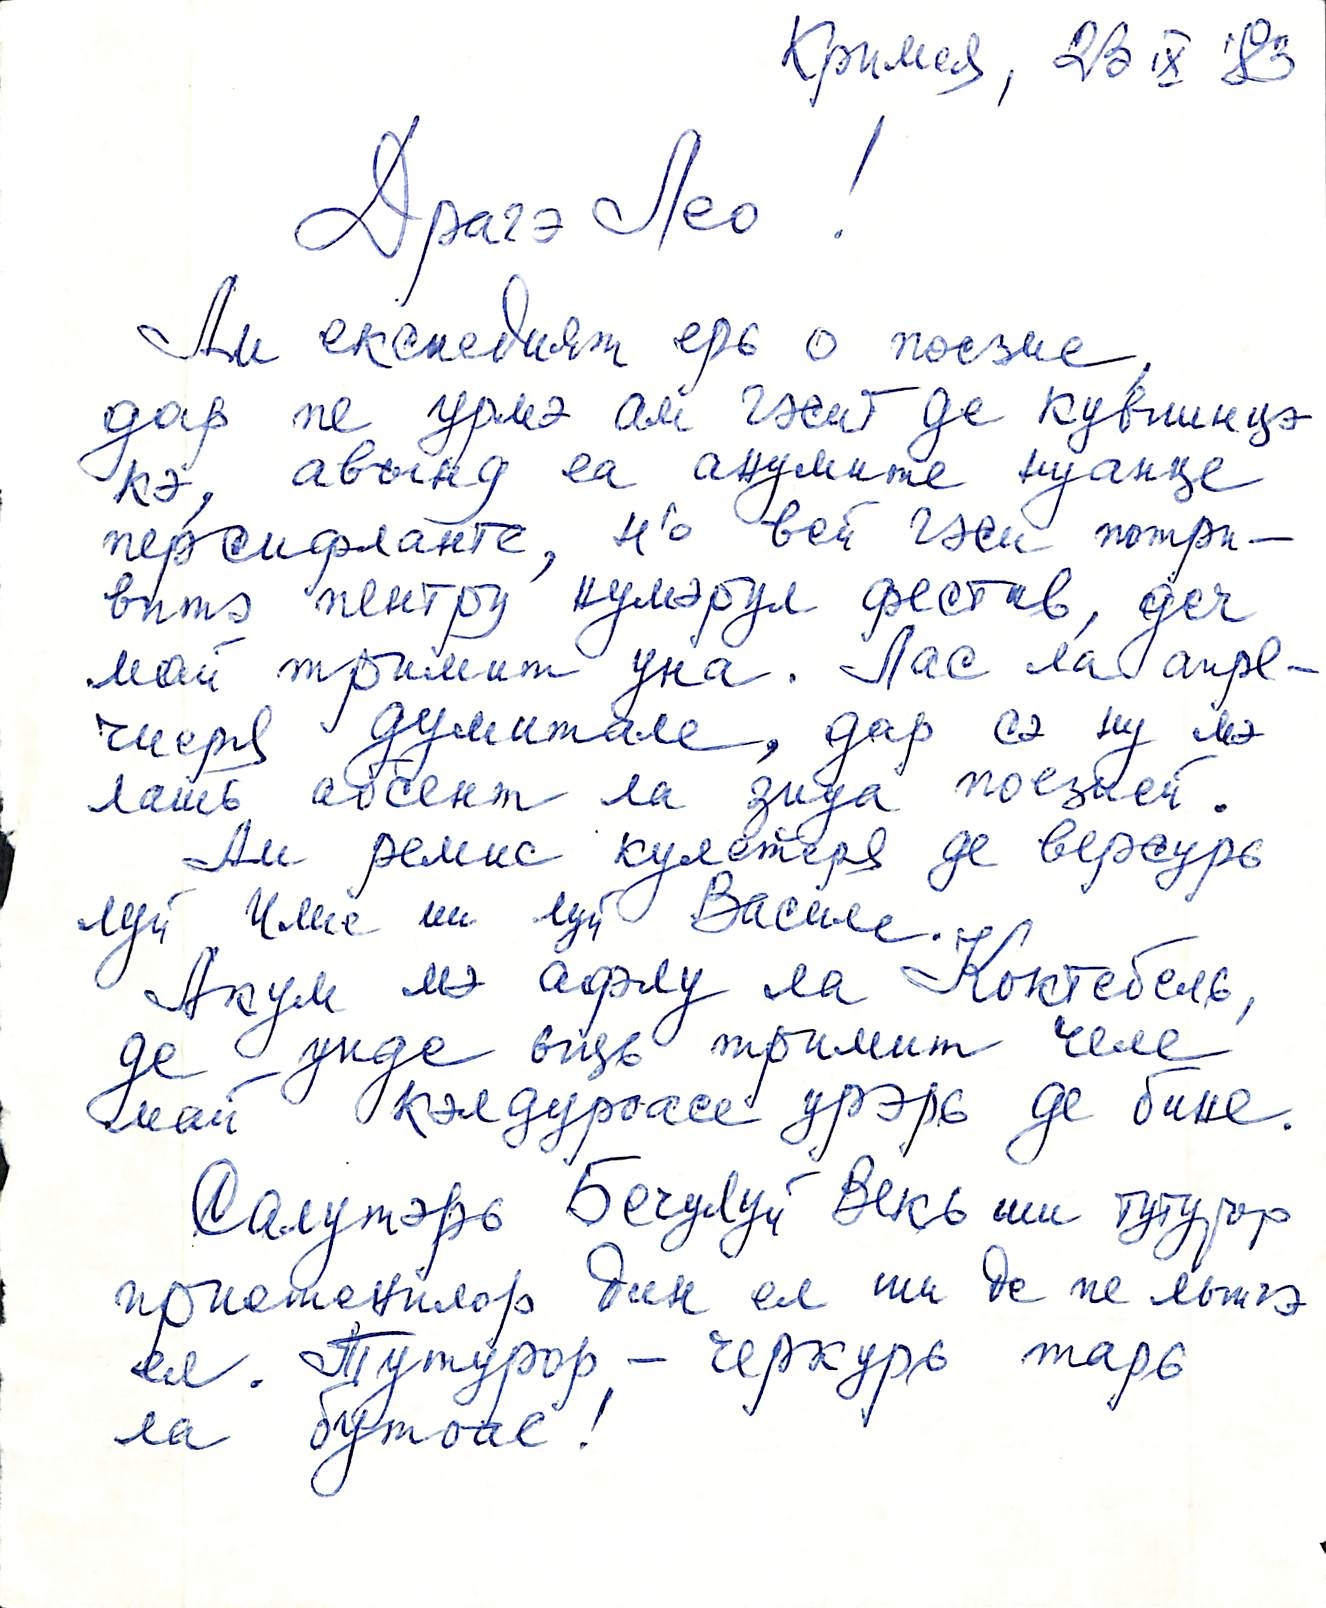 Кримея, 23 IX '83
Драгэ Лео!
Ам експедият ерь о поезие,
дар пе урмэ ам гэсит де кувиинцэ
кэ, авынд еа анумите нуанце
персифланте, н'о вей гэси потри-
витэ пентру нумэрул фестив, деч
май тримит уна. Лас ла апре-
чиеря думитале, дар сэ ну мэ
лашь абсент ла зиуа поезией.
Ам ремис кулетеря де версурь
луй Илие ши луй Василе.
Акум мэ афлу ла Коктебель,
де унде выць тримит челе
май кэлдуроасе урэрь де бине.
Салутэрь Бечулуй Векь ши тутурор
приетенилор дин ел ши де пе лынгэ
ел. Тутурор, - черкурь тарь
ла бутоае!